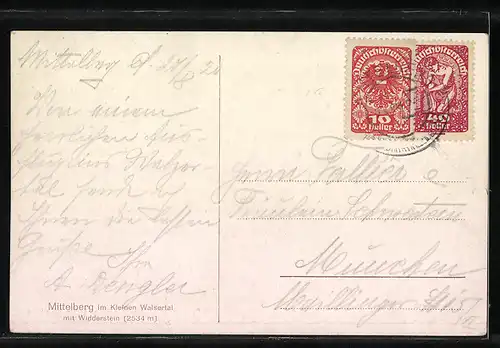 Mittelberg d. 27/6 20
Von einem
herrlichen Aus
flug ins Walser
tal sendet
Ihnen die besten
Grüsse Ihr
A. Dengler
Mittelberg im Kleinen Walsertal
mit Widderstein (2534 m)
Deutschösterreich
10
Heller
Deutschösterreich
40
Heller
Herrn
Fräulein Schwestern
München
Maillinger Str.